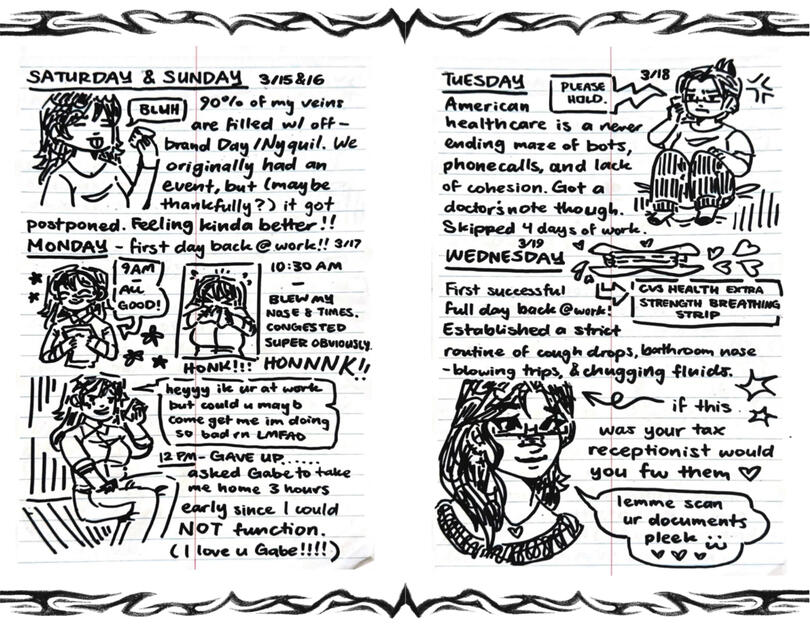 SATURDAY & SUNDAY 3/15&16
BLUH
90% of my veins
are filled w/ off-
brand Day/Nyquil. We
originally had an
event, but (maybe
thankfully?) it got
postponed. Feeling kinda better!!
MONDAY - first day back @ work!! 3/17
9AM
—
ALL
GOOD!
10:30 AM
—
BLEW MY
NOSE 8 TIMES.
CONGESTED
SUPER OBVIOUSLY.
HONK!!! HONNNK!!
heyyy ik ur at work
but could u mayb
come get me im doing
so bad rn LMFAO
12 PM - GAVE UP......
asked Gabe to take
me home 3 hours
early since I could
NOT function.
(I love u Gabe!!!!)
TUESDAY 3/18
PLEASE
HOLD.
American
healthcare is a never
ending maze of bots,
phonecalls, and lack
of cohesion. Got a
doctor's note though.
Skipped 4 days of work.
3/19
WEDNESDAY
First successful
full day back @work!
CVS HEALTH EXTRA
STRENGTH BREATHING
STRIP
Established a strict
routine of cough drops, bathroom nose
-blowing trips, & chugging fluids.
if this
was your tax
receptionist would
you fw them ♡
lemme scan
ur documents
pleek ü